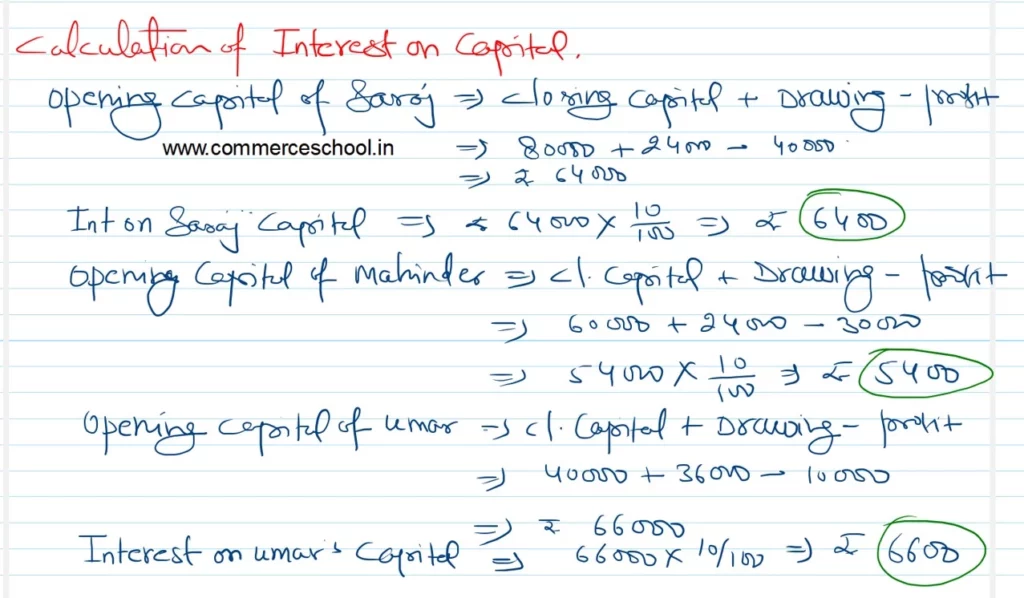 Calculation of Interest on Capital.
Opening Capital of Saroj ⇒ Closing Capital + Drawing - profit
www.commerceschool.in
⇒ 80000 + 24000 - 40000
⇒ ₹ 64000
Int on Saroj Capital ⇒ ₹ 64000 × 10/100 ⇒ ₹ 6400
Opening Capital of Mahinder ⇒ cl. Capital + Drawing - profit
⇒ 60000 + 24000 - 30000
⇒ 54000 × 10/100 ⇒ ₹ 5400
Opening Capital of Umar ⇒ cl. Capital + Drawing - profit
⇒ 40000 + 36000 - 10000
⇒ ₹ 66000
Interest on Umar's Capital ⇒ 66000 × 10/100 ⇒ ₹ 6600